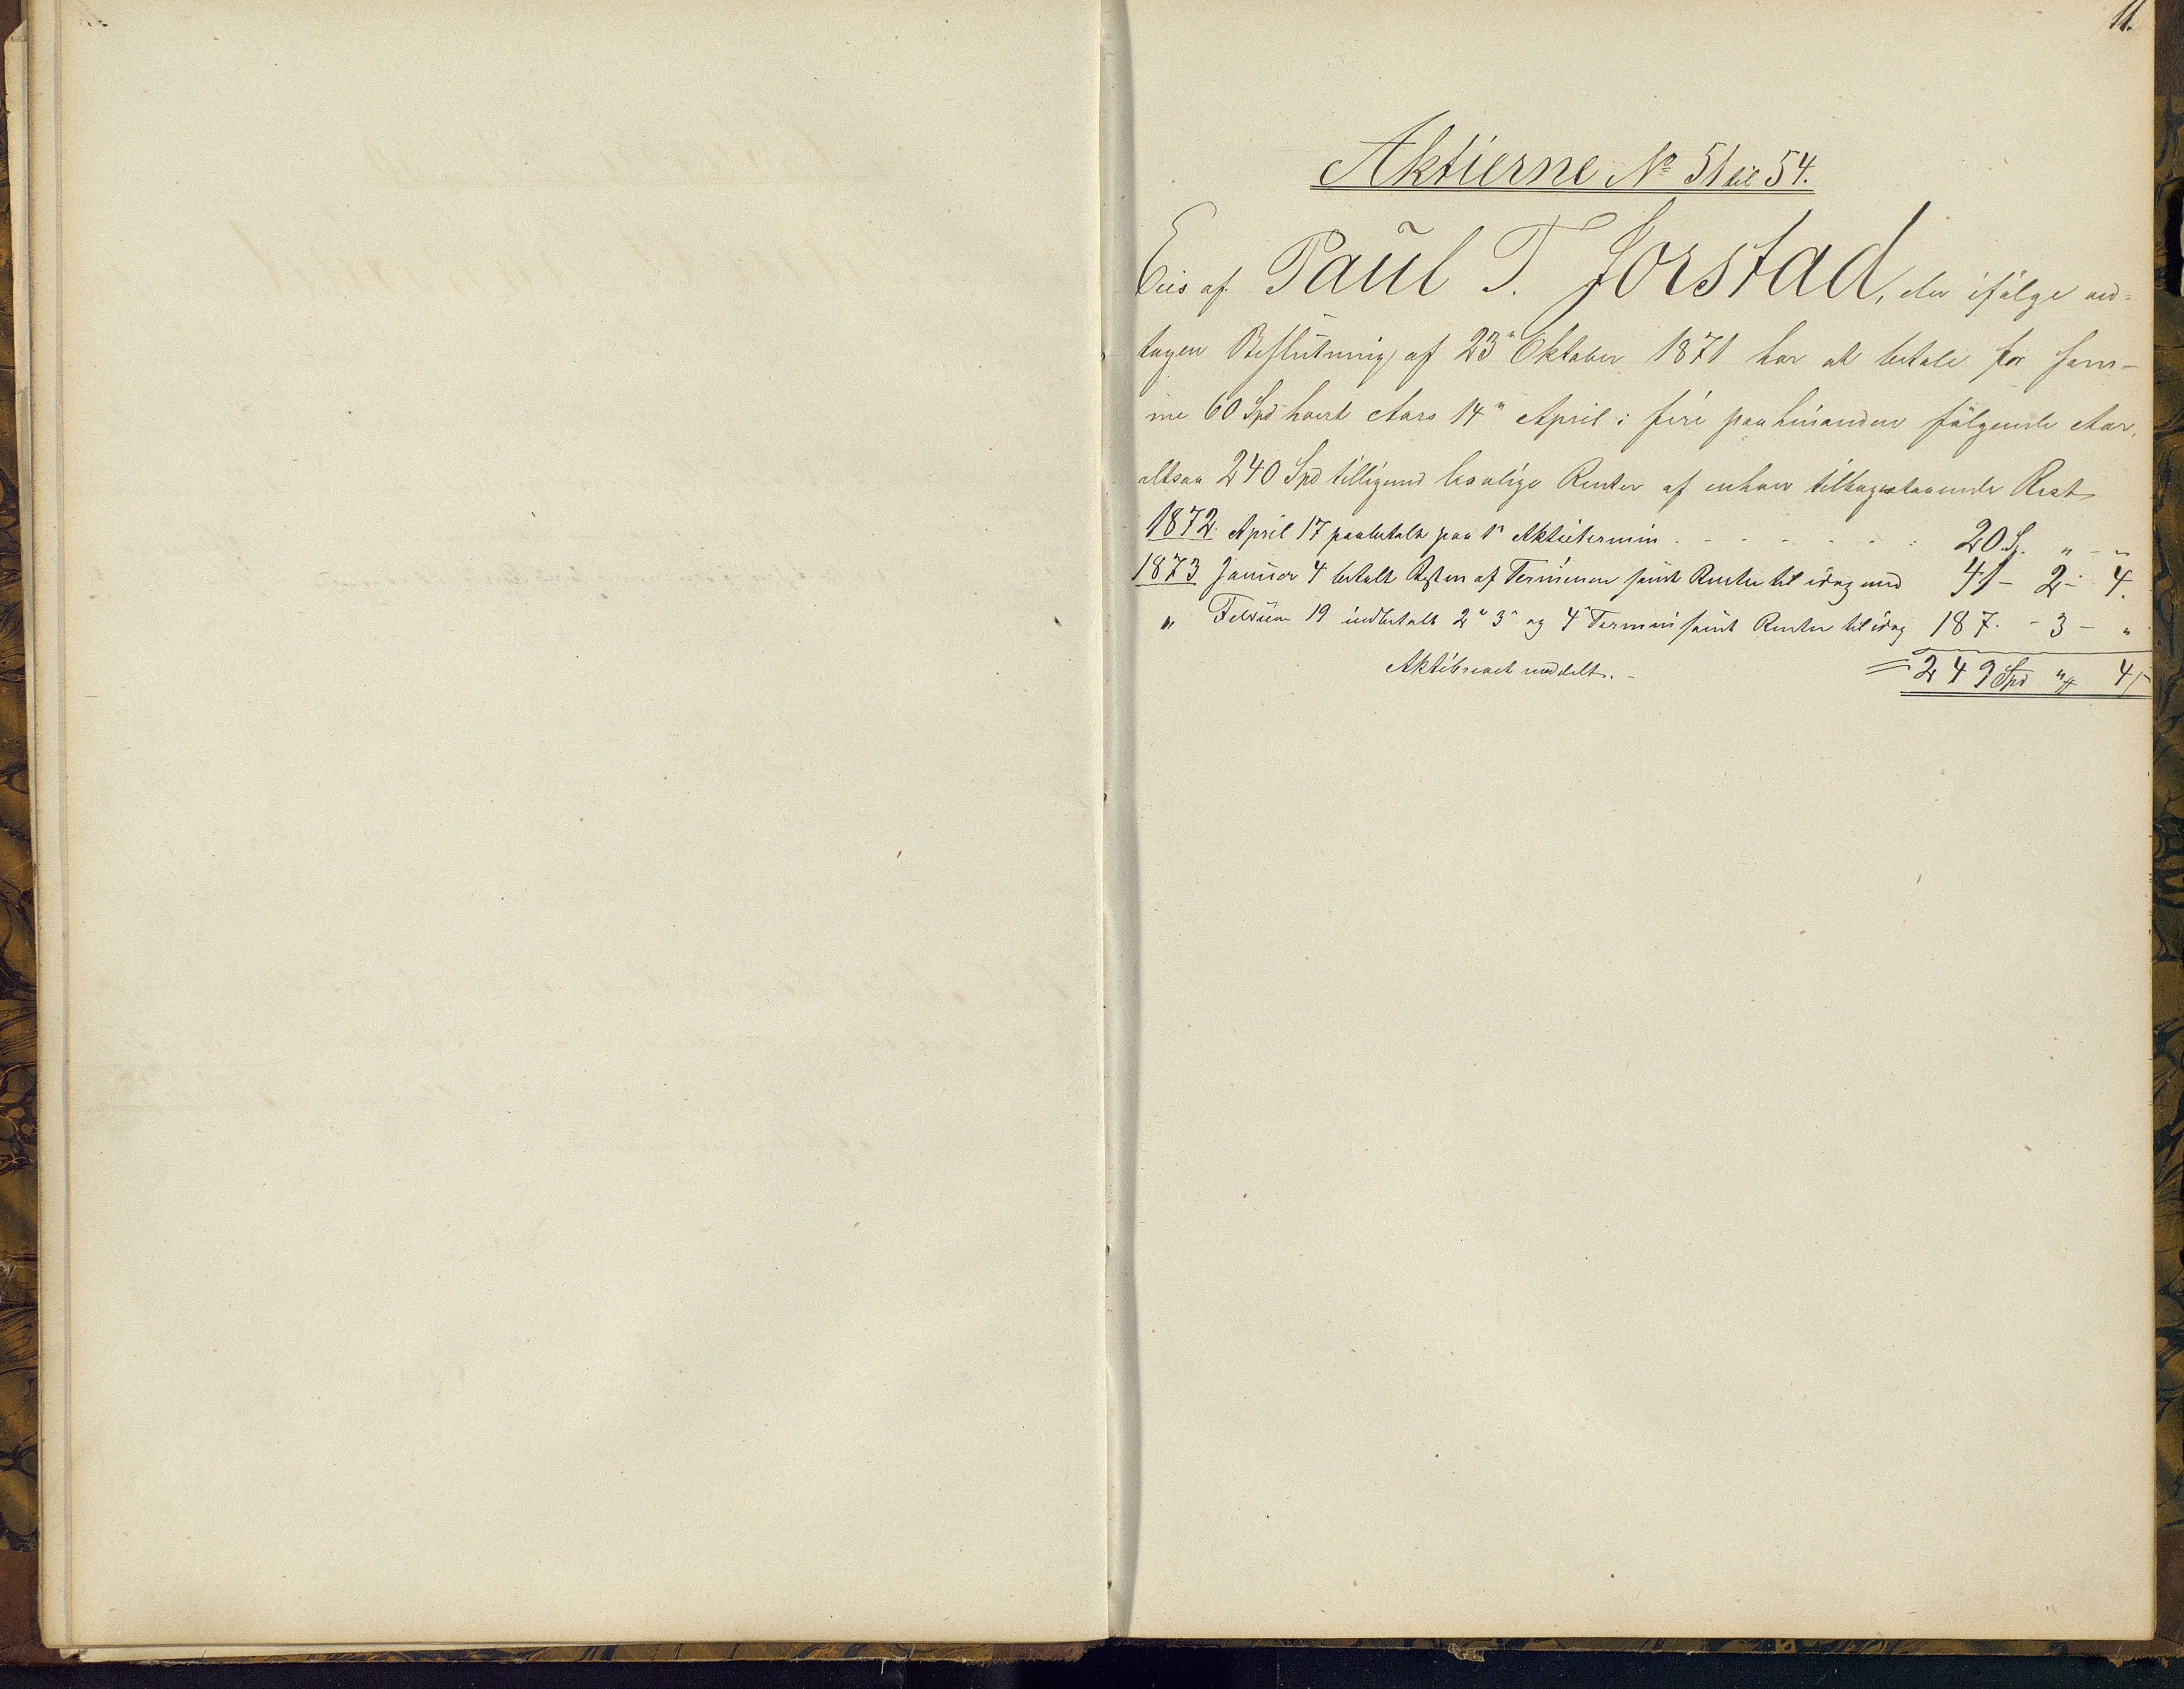 11.
Aktierne No 51 til 54.
Eies af Paul T. Jorstad, der ifølge ved=
tagen Beslutning af 23" Oktober 1871 har at betale for sam-
me 60 Spd hvert Aars 14" April i fire paahinanden følgende Aar,
altsaa 240 Spd tilligemed lovlige Renter af enhver tilbagestaaende Rest
1872. April 17 paabetalt paa 1" Aktietermin . - - - - - - 20 S. " - "
1873 Januar 4 betalt Resten af Terminen samt Renter til idag med 41 - 2 - 4.
" Februar 19 indbetalt 2" 3" og 4" Termin samt Renter til idag 187. - 3 - "
Aktiebrevet meddelt. - = 249 Spd " 4